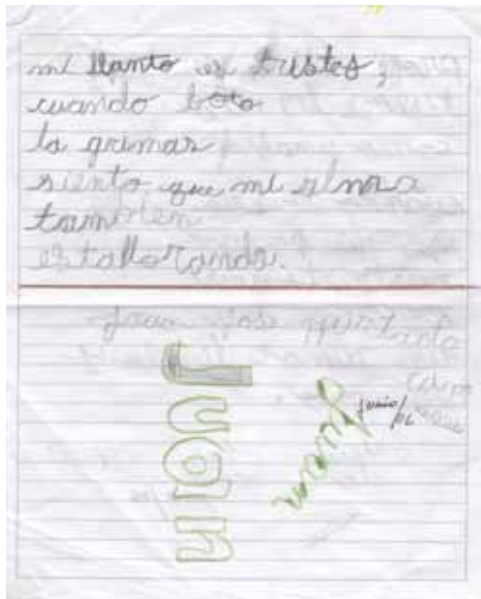 mi llanto es tristes,
cuando boto
la grimas
siento que mi alma
tambien
estallorando.
Juan jose
Juan
Juan
junio/